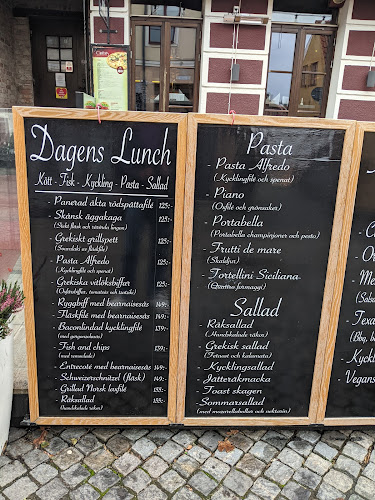 Dagens Lunch
Kött - Fisk - Kyckling - Pasta - Sallad
- Panerad äkta rödspättafilé 125:-
- Skånsk äggakaga 125:-
(Stekt fläsk och rårörda lingon)
- Grekiskt grillspett 125:-
(Souvlaki av fläskfilé)
- Pasta Alfredo 125:-
(Kycklingfilé och spenat)
- Grekiska vitlöksbiffar 125:-
- Ryggbiff med bearnaisesås 149:-
- Fläskfilé med bearnaisesås 149:-
- Baconlindad kycklingfilé 139:-
- Fish and chips 139:-
(med remoulade)
- Entrecoté med bearnaisesås 149:-
- Schweizerschnitzel (fläsk) 149:-
- Grillad Norsk laxfilé 155:-
- Räksallad 155:-
(Handskalade räkor)
Pasta
- Pasta Alfredo
(Kycklingfilé och spenat)
- Piano
(Oxfilé och grönsaker)
- Portabella
(Portabella champinjoner och pesto)
- Frutti de mare
(Skaldjur)
- Tortellini Siciliana
(Quattro formaggi)
Sallad
- Räksallad
(Handskalade räkor)
- Grekisk sallad
(Fetaost och kalamata)
- Kycklingsallad
- Jätteräkmacka
- Toast skagen
- Sommarsallad
(med mozzarellabollar och nektarin)